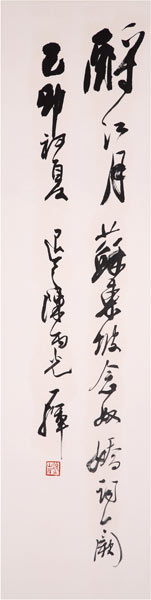 酹江月 蘇東坡念奴嬌詞一闋
乙卯初夏 退之陳雨光揮